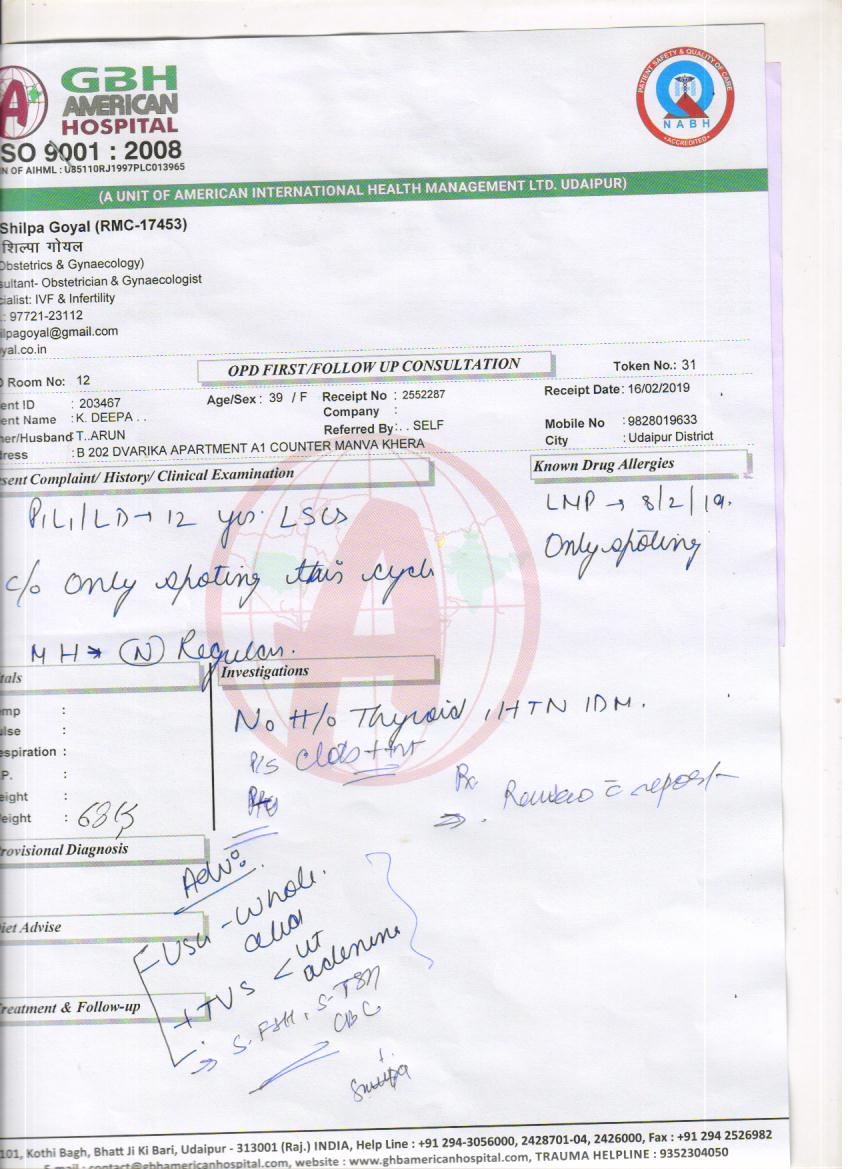 GBH
AMERICAN
HOSPITAL
SO 9001 : 2008
N OF AIHML : U85110RJ1997PLC013965
PATIENT SAFETY & QUALITY OF CARE
NABH
ACCREDITED
(A UNIT OF AMERICAN INTERNATIONAL HEALTH MANAGEMENT LTD. UDAIPUR)
Shilpa Goyal (RMC-17453)
शिल्पा गोयल
Obstetrics & Gynaecology)
sultant- Obstetrician & Gynaecologist
cialist: IVF & Infertility
.: 97721-23112
ilpagoyal@gmail.com
yal.co.in
OPD FIRST/FOLLOW UP CONSULTATION
Token No.: 31
D Room No: 12
Age/Sex : 39 / F Receipt No : 2552287 Receipt Date: 16/02/2019
ent ID : 203467 Company :
ent Name : K. DEEPA . . Referred By : . . SELF Mobile No : 9828019633
her/Husband T..ARUN City : Udaipur District
dress : B 202 DVARIKA APARTMENT A1 COUNTER MANVA KHERA
esent Complaint/ History/ Clinical Examination Known Drug Allergies
P1L1/LD→12 yrs. LSCS LMP → 8/2/19.
Only spoting
c/o only spoting this cycle
MH → (N) Regular.
tals Investigations
emp :
ulse :
espiration :
.P. :
eight :
eight : 68
No H/o Thyroid, HTN, DM.
P/S Clots +nt
Rx
Review c̄ report
rovisional Diagnosis
Adv:
iet Advise
- USG - Whole
+ TVS < ut
reatment & Follow-up
→ S. FSH, S-TSH
CBC
101, Kothi Bagh, Bhatt Ji Ki Bari, Udaipur - 313001 (Raj.) INDIA, Help Line : +91 294-3056000, 2428701-04, 2426000, Fax : +91 294 2526982
E-mail : contact@gbhamericanhospital.com, website : www.ghbamericanhospital.com, TRAUMA HELPLINE : 9352304050